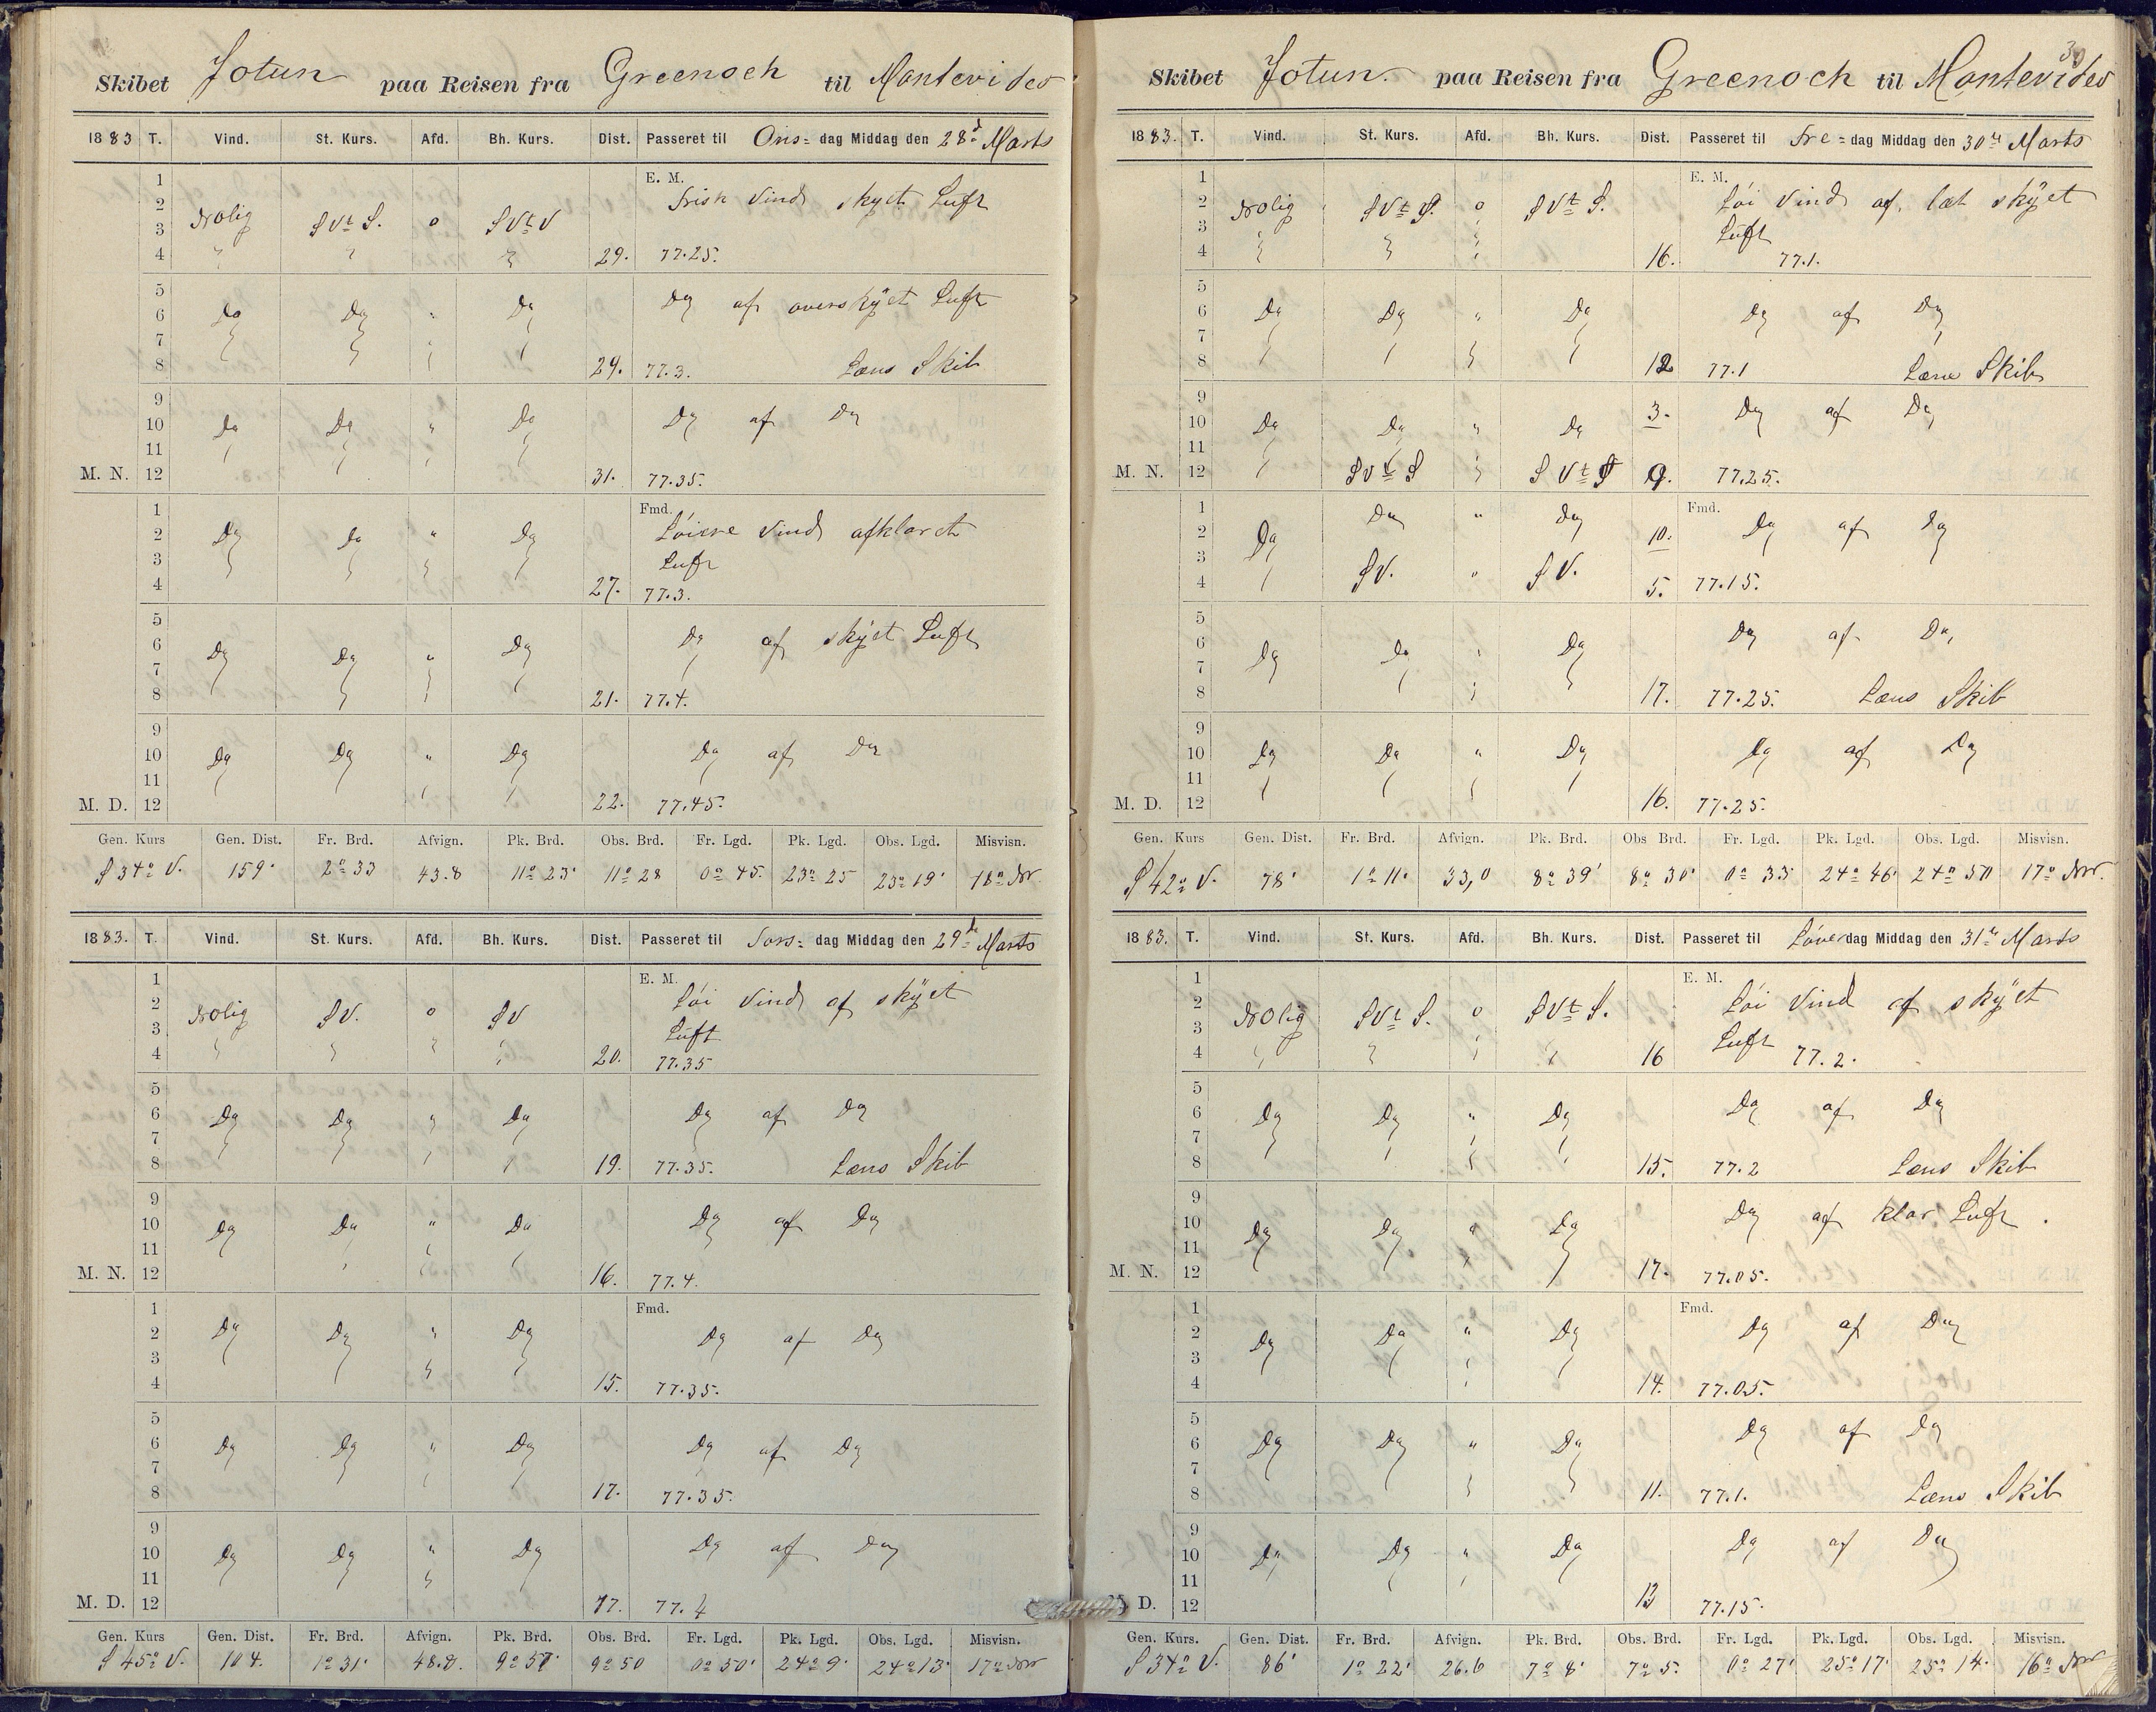 Skibet Jotun paa Reisen fra Greenock til Montevideo
1883 T. Vind. St. Kurs. Afd. Bh. Kurs. Dist. Passeret til Ons= dag Middag den 28d Marts
1 E. M.
2 Frisk Vind skyet Luft
3 NOlig SVt S. o SVt V
4 29. 77.25.
5
6 Do Do " Do Do af overskÿet Luft
7
8 29. 77.3. Læns Skib
9
10 Do Do " Do Do af Do
11
M. N. 12 31. 77.35.
1 Fmd.
2 Do Do " Do Löiere Vind afklaret
3 Luft
4 27. 77.3.
5
6 Do Do " Do Do af skÿet Luft
7
8 21. 77.4.
9
10 Do Do " Do Do af Do
11
M. D. 12 22. 77.45.
Gen. Kurs Gen. Dist. Fr. Brd. Afvign. Pk. Brd. Obs. Brd. Fr. Lgd. Pk. Lgd. Obs. Lgd. Misvisn.
S 34° V. 159' 2° 33 43.8 11° 23' 11° 28 0° 45. 23° 25 23° 19' 18° NW
1883. T. Vind. St. Kurs. Afd. Bh. Kurs. Dist. Passeret til Tors= dag Middag den 29de Marts
1 E. M.
2 NOlig SV. o SV Löi Vind af skÿet
3 Luft
4 20. 77.35
5
6 Do Do " Do Do af Do
7
8 19. 77.35. Læns Skib
9
10 Do Do " Do Do af Do
11
M. N. 12 16. 77.4.
1 Fmd.
2 Do Do " Do Do af Do
3
4 15. 77.35.
5
6 Do Do " Do Do af Do
7
8 17. 77.35.
9
10 Do Do " Do Do af Do
11
M. D. 12 17. 77.4
Gen. Kurs Gen. Dist. Fr. Brd. Afvign. Pk. Brd. Obs. Brd. Fr. Lgd. Pk. Lgd. Obs. Lgd. Misvisn.
S 45° V. 104. 1° 31' 48.8. 9° 57' 9° 50 0° 50' 24° 9' 24° 13' 17° NW
30
Skibet Jotun. paa Reisen fra Greenock til Montevideo
1883. T. Vind. St. Kurs. Afd. Bh. Kurs. Dist. Passeret til Fre= dag Middag den 30te Marts
1 E. M.
2 NOlig SVt S. o SVt S. Löi Vind af. let skÿet
3 Luft
4 16. 77.1.
5
6 Do Do " Do Do af Do
7
8 12 77.1 Læns Skib
9 3.
10 Do Do " Do Do af Do
11
M. N. 12 SVt S SVt S 9. 77.25.
1 Do " Do Fmd.
2 Do 10. Do af Do
3
4 SV. " SV. 5. 77.15.
5
6 Do Do Do Do af Do
7
8 17. 77.25. Læns Skib
9
10 Do Do " Do Do af Do
11
M. D. 12 16. 77.25.
Gen. Kurs Gen. Dist. Fr. Brd. Afvign. Pk. Brd. Obs Brd. Fr. Lgd. Pk. Lgd. Obs. Lgd. Misvisn.
S 42° V. 78' 1° 11' 33,0 8° 39' 8° 30' 0° 33 24° 46' 24° 50 17° NW.
1883. T. Vind. St. Kurs. Afd. Bh. Kurs. Dist. Passeret til Löver dag Middag den 31te Marts
1 E. M.
2 NOlig SVt S. o SVt S. Löi Vind af skÿet
3 Luft
4 16 77.2.
5
6 Do Do " Do Do af Do
7
8 15. 77.2 Læns Skib
9
10 Do Do " Do Do af klar Luft.
11
M. N. 12 17. 77.05.
1 Fmd.
2 Do Do " Do Do af Do
3
4 14. 77.05.
5
6 Do Do " Do Do af Do
7
8 11. 77.1. Læns Skib
9
10 Do Do " Do Do af Do
11
D. 12 13 77.15.
Gen. Kurs. Gen. Dist. Fr. Brd. Afvign. Pk. Brd. Obs. Brd. Fr. Lgd. Pk. Lgd. Obs. Lgd. Misvisn.
S 34° V. 86' 1° 22' 26.6 7° 8' 7° 5. 0° 27' 25° 17' 25° 14. 16° NW